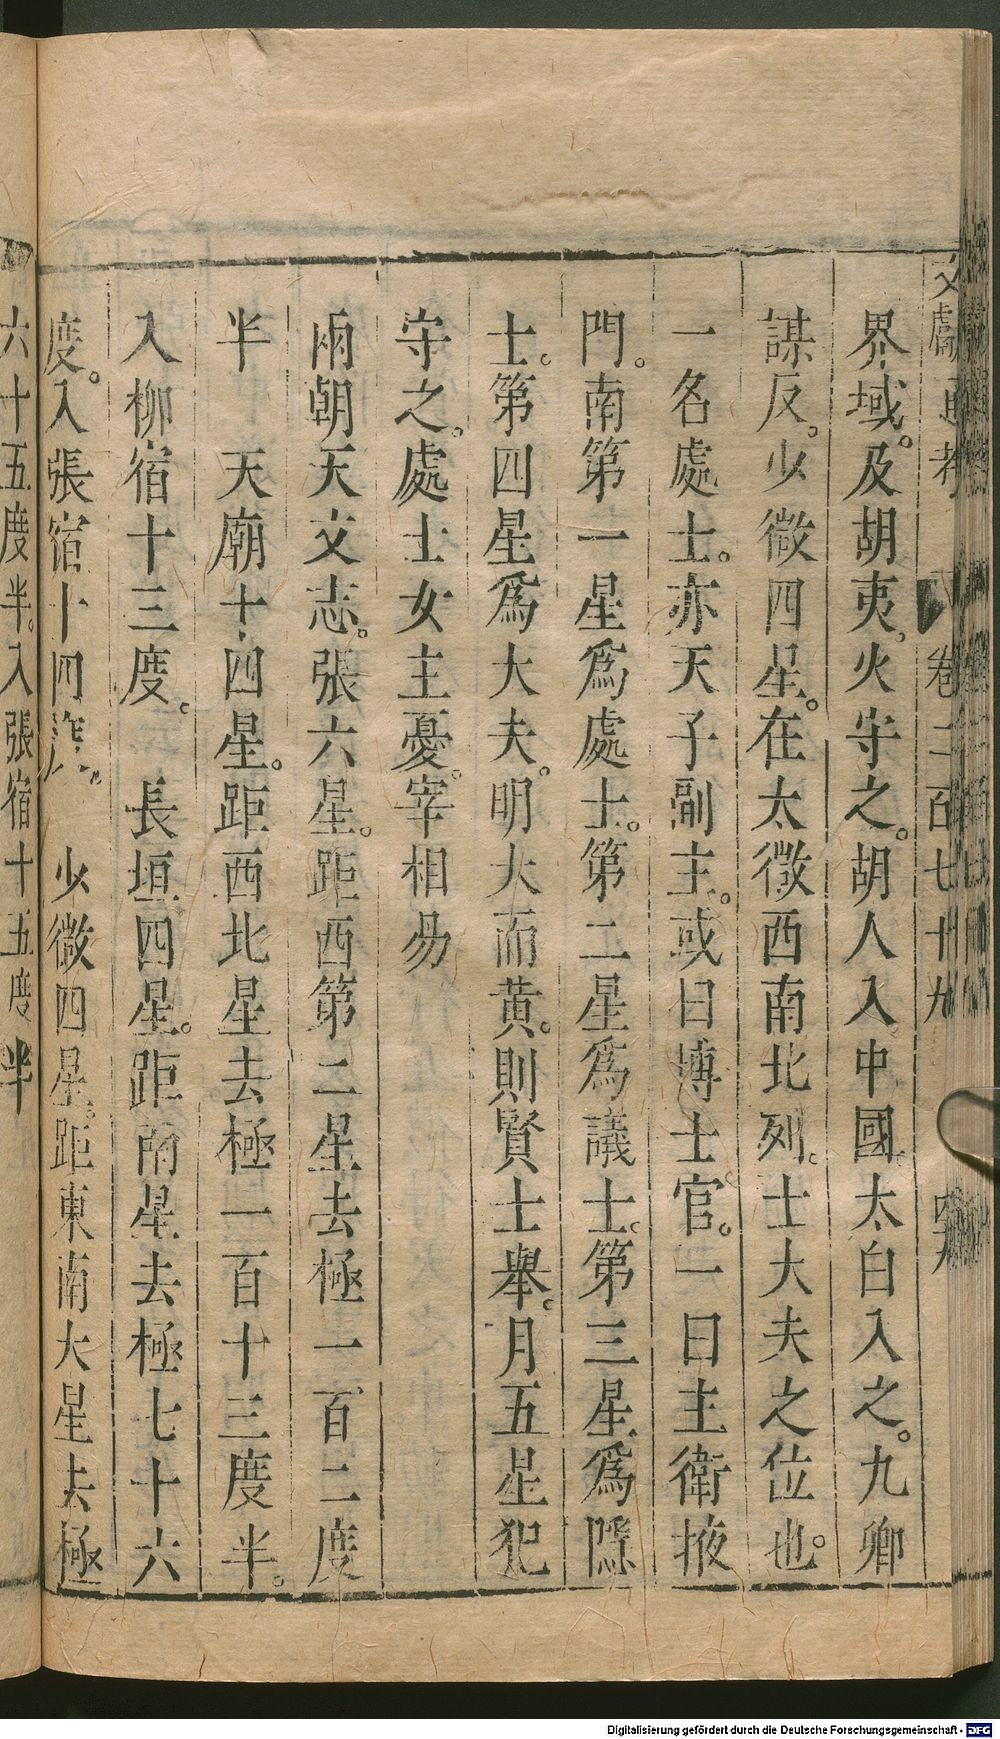 文獻通考 卷二百七十九
界域。及胡夷。火守之。胡人入中國。太白入之。九卿
謀反。少微四星。在太微西南北列。士大夫之位也。
一名處士。亦天子副主。或曰博士官。一曰主衛掖
門。南第一星爲處士。第二星爲議士。第三星爲隱
士。第四星爲大夫。明大而黃。則賢士舉。月五星犯
守之。處士女主憂。宰相易
兩朝天文志。張六星。距西第二星去極一百二度
半 天廟十四星。距西北星去極一百十三度半。
入柳宿十三度。 長垣四星。距南星去極七十六
度。入張宿十四度。 少微四星。距東南大星去極
六十五度半。入張宿十五度半
Digitalisierung gefördert durch die Deutsche Forschungsgemeinschaft - DFG